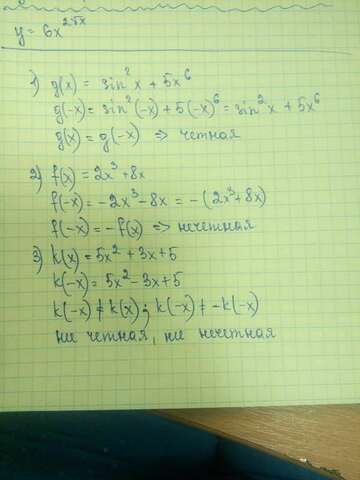 y = 6x^{2√x}
1) g(x) = sin²x + 5x⁶
g(-x) = sin²(-x) + 5(-x)⁶ = sin²x + 5x⁶
g(x) = g(-x) => четная
2) f(x) = 2x³ + 8x
f(-x) = -2x³ - 8x = -(2x³ + 8x)
f(-x) = -f(x) => нечетная
3) k(x) = 5x² + 3x + 5
k(-x) = 5x² - 3x + 5
k(-x) ≠ k(x); k(-x) ≠ -k(-x)
ни четная, ни нечетная